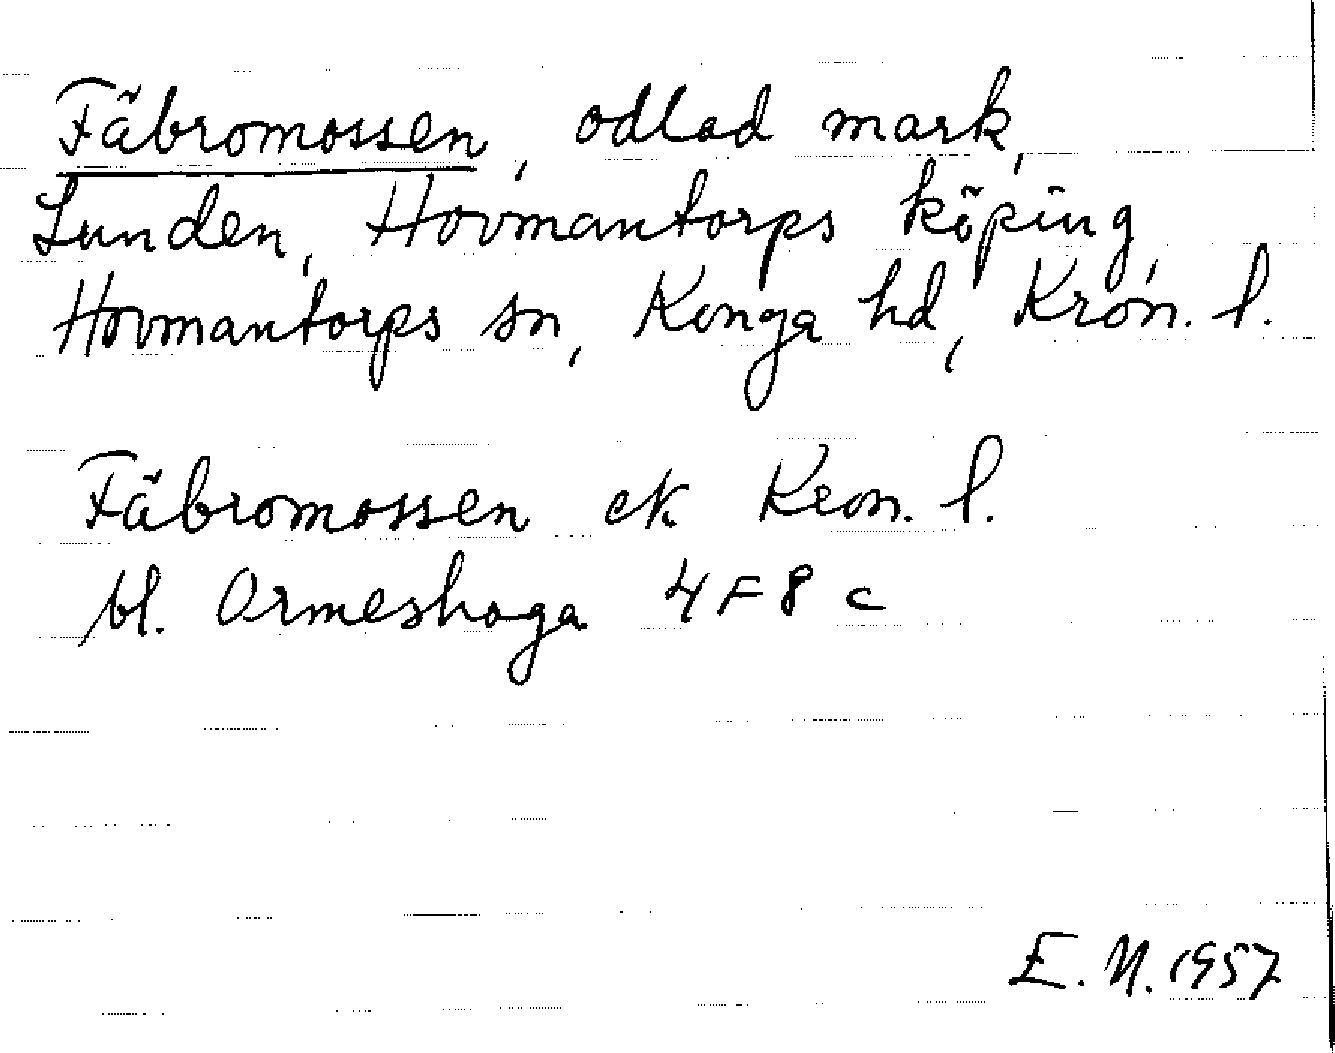 Fäbromossen, odlad mark,
Lunden, Hovmantorps köping,
Hovmantorps sn, Konga hd, Kron. l.
Fäbromossen ek Kron. l.
bl. Ormeshaga 4 F 8 c
E. N. 1957